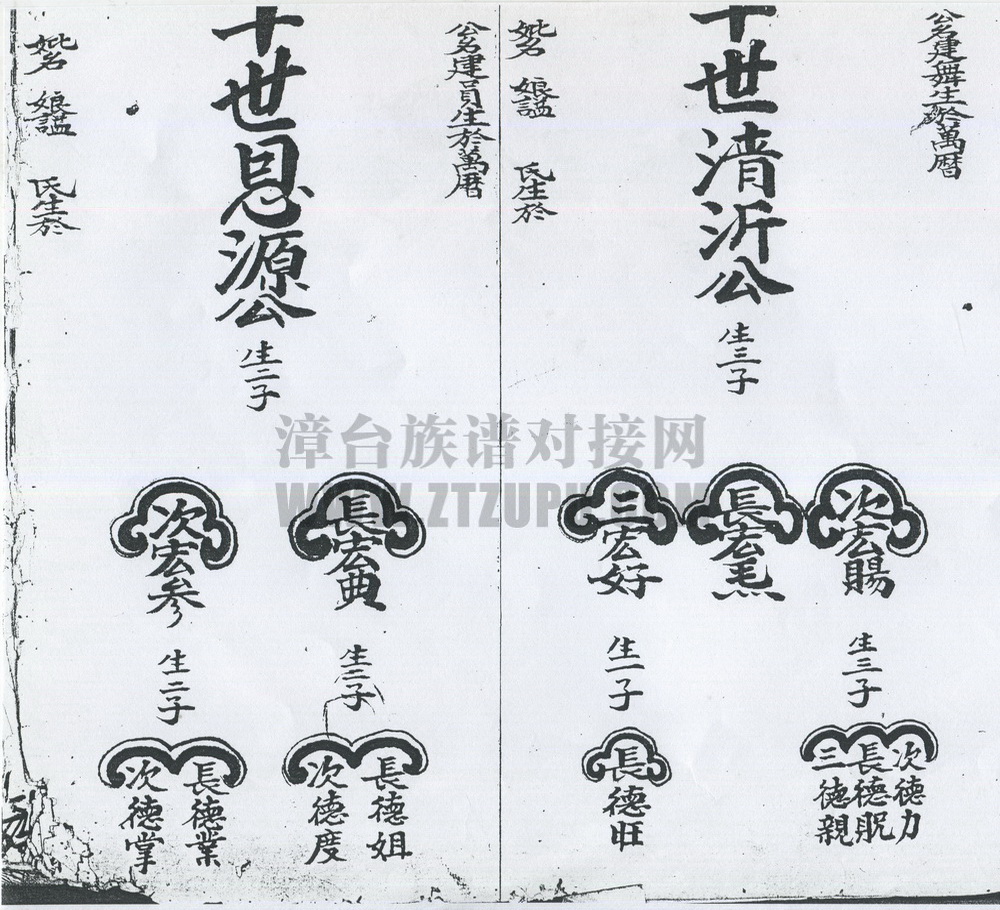 公名建舜生於萬暦
十世清沂公
生三子
次宏賜
長宏𤆬
三宏好
生三子
生一子
次德力
長德貺
三德親
長德旺
妣名 娘謚 氏生於
公名建員生於萬暦
十世思源公
生二子
長宏典
次宏參
生二子
生二子
長德姐
次德度
長德業
次德掌
妣名 娘謚 氏生於
漳台族谱对接网
WWW.ZTZUPU.COM